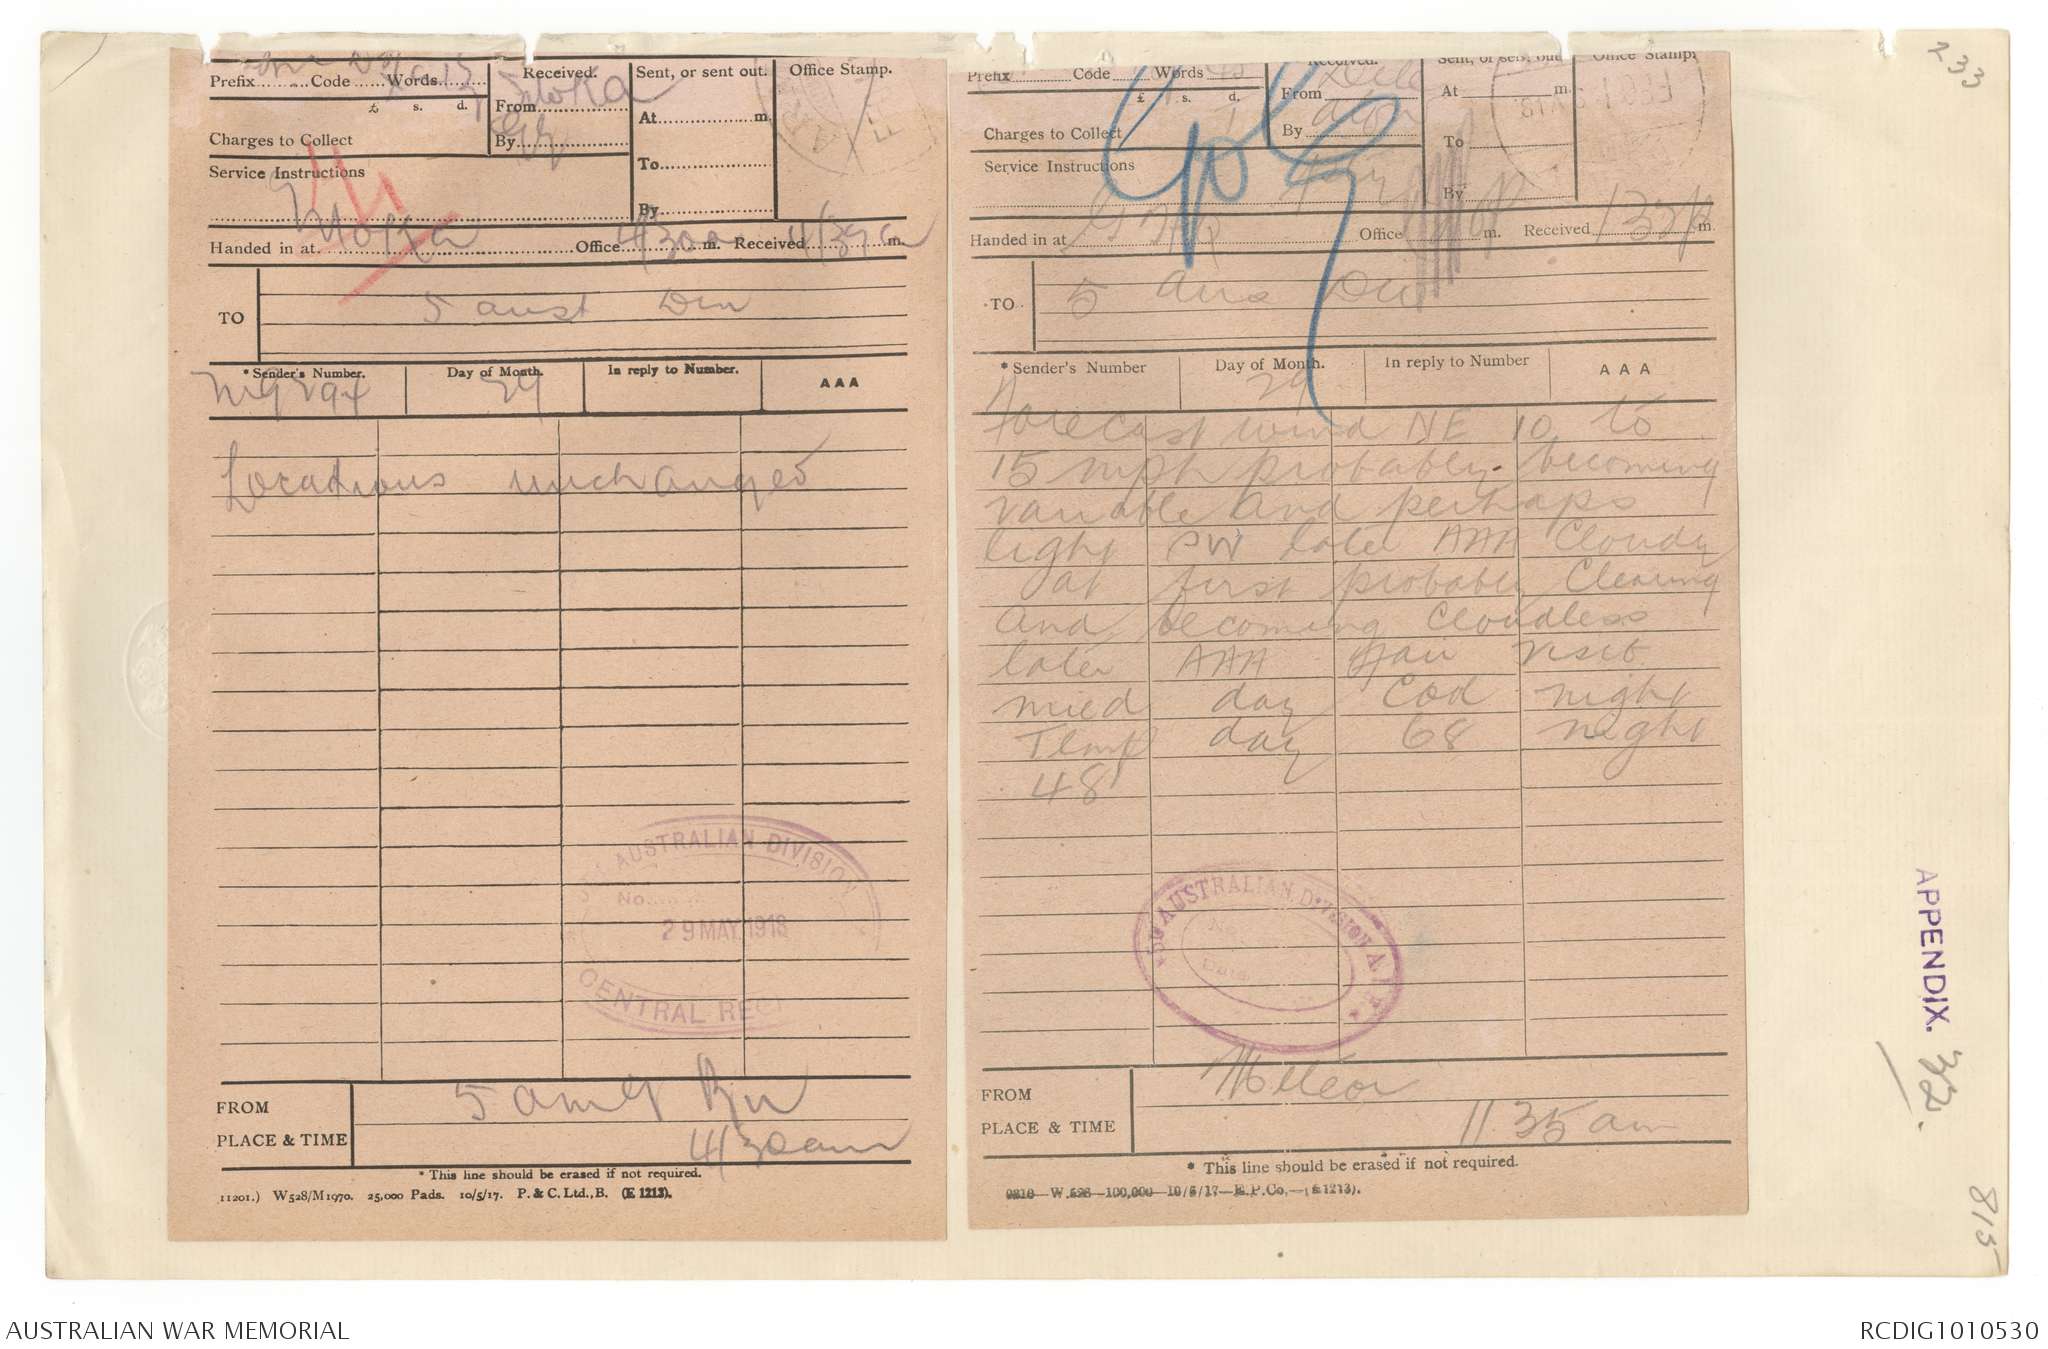 233
Prefix Code Words
£ s. d.
Charges to Collect
Service Instructions
Received.
From
By
Sent, or sent out.
At m.
To
By
Office Stamp.
Handed in at Office 4/30a m. Received 4/39a m.
TO
5 aust Div
* Sender's Number. Day of Month. In reply to Number. AAA
29
Locations unchanged
AUSTRALIAN DIVISION
No.
29 MAY 1918
CENTRAL
FROM
PLACE & TIME
4/30am
* This line should be erased if not required.
11201.) W528/M1970. 25,000 Pads. 10/5/17. P. & C. Ltd., B. (E 1213).
Prefix Code Words
£ s. d.
Charges to Collect
Service Instructions
Received.
From
By
Sent, or sent out.
At m.
To
By
Office Stamp.
Handed in at Office m. Received m.
TO
5 Aus Div
* Sender's Number Day of Month. In reply to Number AAA
29
Forecast wind NE 10 to
15 mph probably becoming
variable and perhaps
light SW later AAA Cloudy
at first probably Clearing
and becoming Cloudless
later AAA Fair visib
day night
Temp day 68 night
48
AUSTRALIAN DIVISION A.I.F.
FROM
Meteor
PLACE & TIME
11 35 am
* This line should be erased if not required.
W.528—100,000—10/5/17
APPENDIX. 32.
815
AUSTRALIAN WAR MEMORIAL
RCDIG1010530